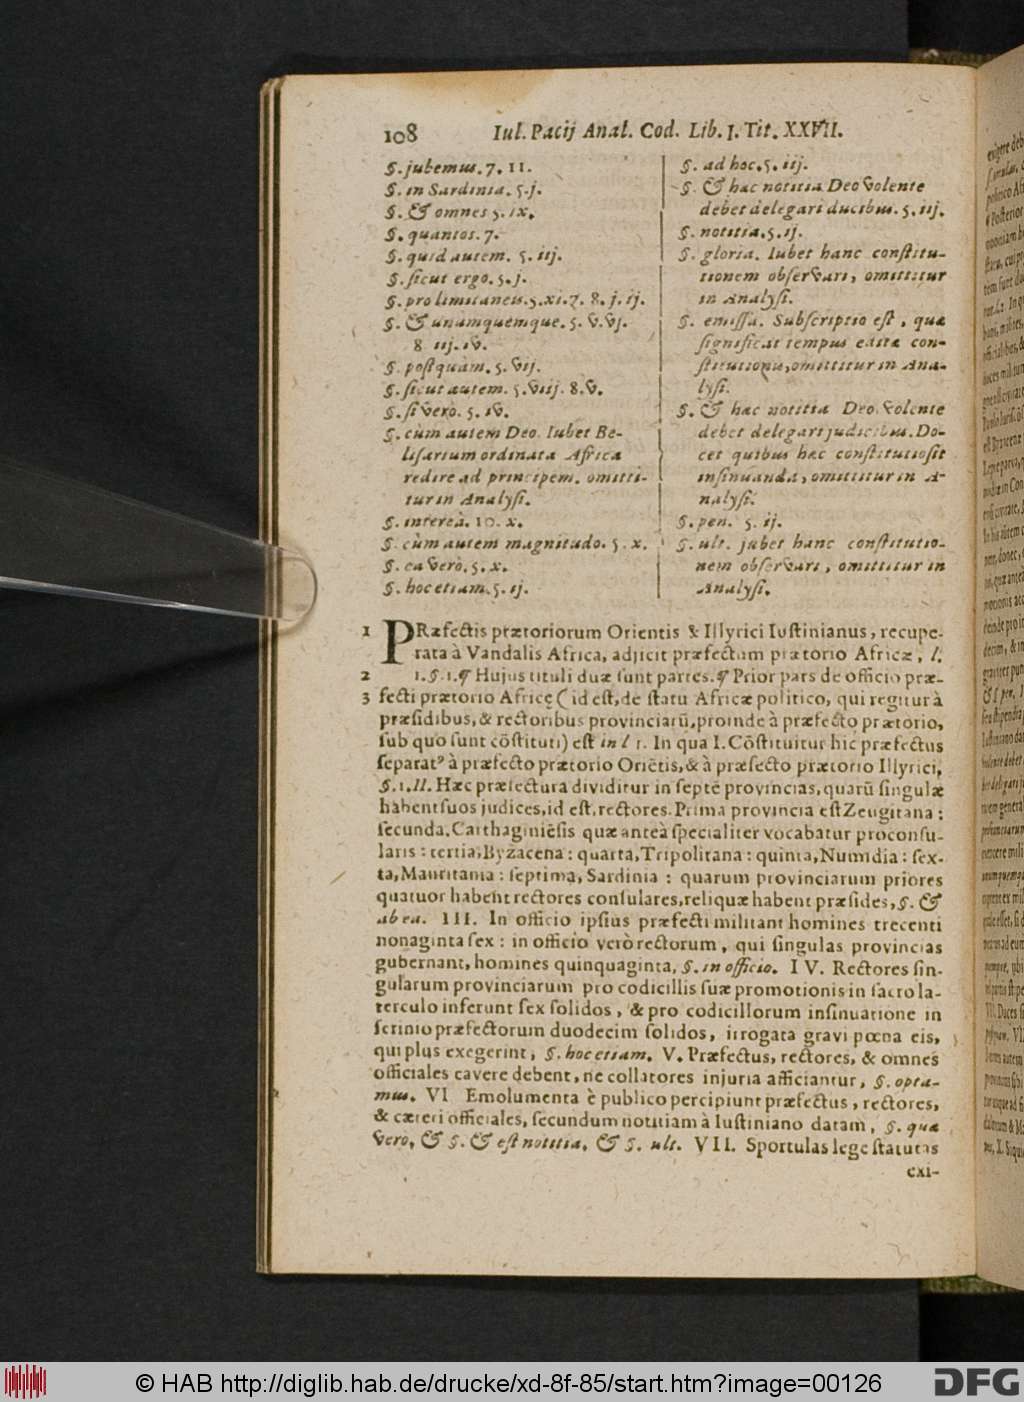 108 Iul. Pacij Anal. Cod. Lib. I. Tit. XXVII.
§. jubemus. 7. 11.
§. in Sardinia. 5. j.
§. & omnes 5. ix.
§. quantos. 7.
§. quid autem. 5. iij.
§. sicut ergo. 5. j.
§. pro limitaneis. 5. xi. 7. 8. j. ij.
§. & unamquemque. 5. v. vj.
8 iij. iv.
§. postquàm. 5. vij.
§. sicut autem. 5. viij. 8. v.
§. si verò. 5. iv.
§. cùm autem Deo. Iubet Be-
lisarium ordinata Africa
redire ad principem. omitti-
tur in Analysi.
§. intereà. 10. x.
§. cùm autem magnitudo. 5. x.
§. ea verò. 5. x.
§. hoc etiam. 5. ij.
§. ad hoc. 5. iij.
§. & hæc notitia Deo volente
debet delegari ducibus. 5. iij.
§. notitia. 5. ij.
§. gloria. Iubet hanc constitu-
tionem observari, omittitur
in Analysi.
§. emissa. Subscriptio est, quæ
significat tempus editæ con-
stitutionis, omittitur in Ana-
lysi.
§. & hæc notitia Deo. volente
debet delegari judicibus. Do-
cet quibus hæc constitutio sit
insinuanda, omittitur in A-
nalysi.
§. pen. 5. ij.
§. ult. jubet hanc constitutio-
nem observari, omittitur in
Analysi.
1 PRæfectis prætoriorum Orientis & Illyrici Iustinianus, recupe-
rata à Vandalis Africa, adjicit præfectum prætorio Africæ, l.
2 1. §. 1. ¶ Hujus tituli duæ sunt partes. ¶ Prior pars de officio præ-
3 fecti prætorio Africę (id est, de statu Africæ politico, qui regitur à
præsidibus, & rectoribus provinciarū, proinde à præfecto prætorio,
sub quo sunt cōstituti) est in l 1. In qua I. Cōstituitur hic præfectus
separatꝰ à præfecto prætorio Oriētis, & à præfecto prætorio Illyrici,
§. 1. II. Hæc præfectura dividitur in septē provincias, quarū singulæ
habent suos judices, id est, rectores. Prima provincia est Zeugitana:
secunda, Carthaginiēsis quæ anteà specialiter vocabatur proconsu-
laris: tertia, Byzacena: quarta, Tripolitana: quinta, Numidia: sex-
ta, Mauritania: septima, Sardinia: quarum provinciarum priores
quatuor habent rectores consulares, reliquæ habent præsides, §. &
ab ea. III. In officio ipsius præfecti militant homines trecenti
nonaginta sex: in officio verò rectorum, qui singulas provincias
gubernant, homines quinquaginta, §. in officio. IV. Rectores sin-
gularum provinciarum pro codicillis suæ promotionis in sacro la-
terculo inferunt sex solidos, & pro codicillorum insinuatione in
scrinio præfectorum duodecim solidos, irrogata gravi pœna eis,
qui plus exegerint, §. hoc etiam. V. Præfectus, rectores, & omnes
officiales cavere debent, ne collatores injuria afficiantur, §. opta-
mus. VI Emolumenta è publico percipiunt præfectus, rectores,
& cæteri officiales, secundum notitiam à Iustiniano datam, §. quæ
vero, & §. & est notitia, & §. ult. VII. Sportulas lege statutas
exi-
© HAB http://diglib.hab.de/drucke/xd-8f-85/start.htm?image=00126
DFG